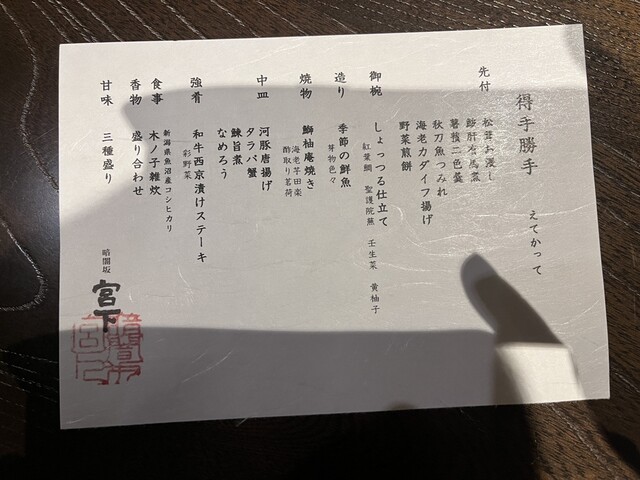 得手勝手 えてかって
先付 松茸お浸し
鮟肝有馬煮
薯蕷二色羹
秋刀魚つみれ
海老カダイフ揚げ
野菜煎餅
御椀 しょっつる仕立て
紅葉鯛 聖護院蕪 壬生菜 黄柚子
造り 季節の鮮魚
芽物色々
焼物 鰤柚庵焼き
海老芋田楽
酢取り茗荷
中皿 河豚唐揚げ
タラバ蟹
鰊旨煮
なめろう
強肴 和牛西京漬けステーキ
彩野菜
新潟県魚沼産コシヒカリ
食事 木ノ子雑炊
香物 盛り合わせ
甘味 三種盛り
暗闇坂
宮下